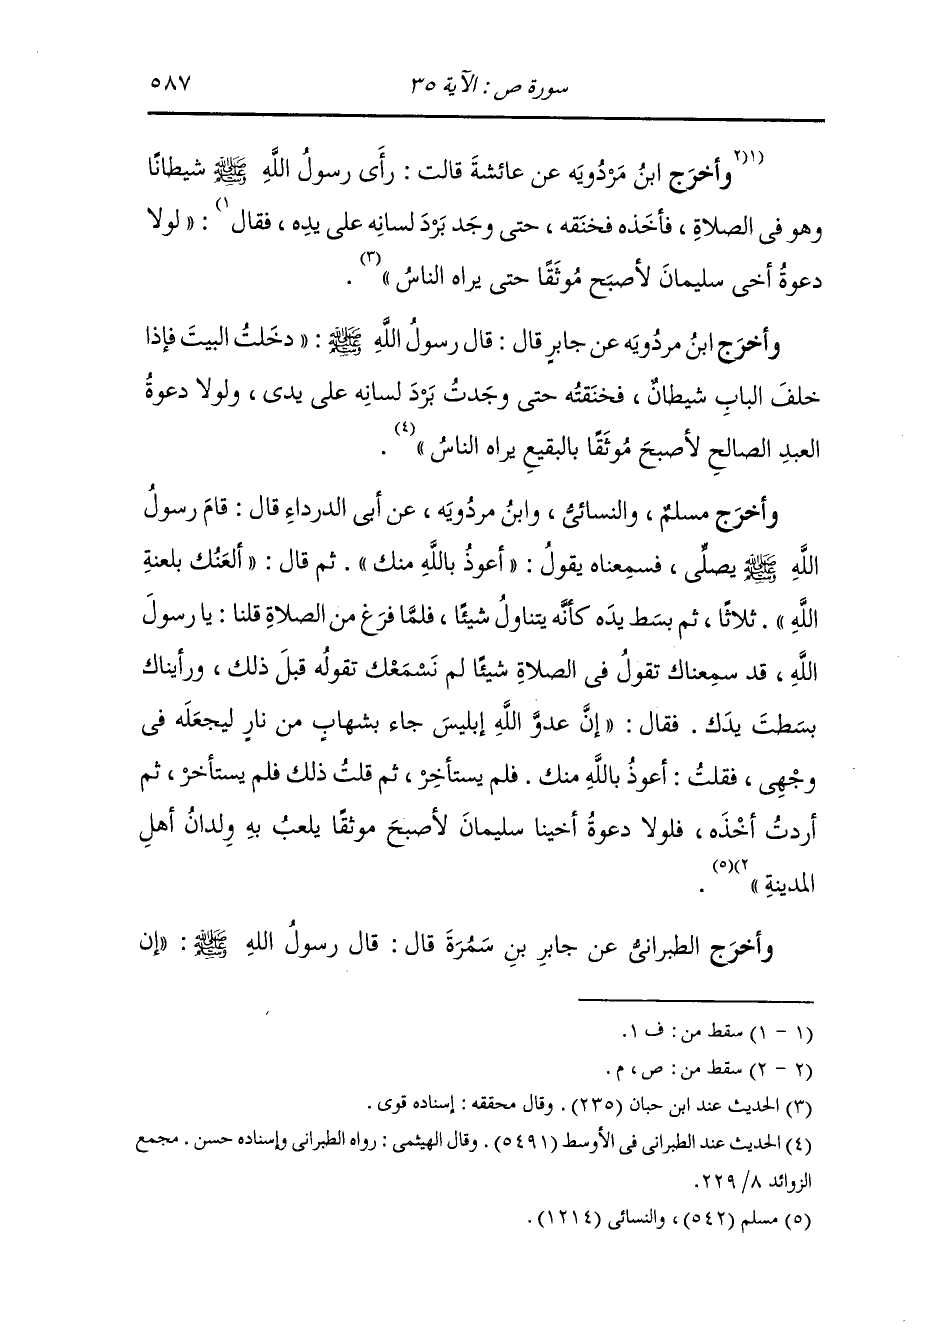 سورة ص : الآية ٣٥ ٥٨٧
(١(٢وأخرَج ابنُ مَرْدُويَه عن عائشةَ قالت : رأَى رسولُ اللَّهِ ﷺ شيطانًا
وهو فى الصلاةِ ، فأخَذه فخنَقه ، حتى وجَد بَرْدَ لسانِه على يدِه ، فقال١) : « لولا
دعوةُ أخى سليمانَ لأصبَح مُوثَقًا حتى يراه الناسُ »(٣) .
وأخرَج ابنُ مردُويَه عن جابرٍ قال : قال رسولُ اللَّهِ ﷺ : « دخَلتُ البيتَ فإذا
خلفَ البابِ شيطانٌ ، فخنَقتُه حتى وجَدتُ بَرْدَ لسانِه على يدى ، ولولا دعوةُ
العبدِ الصالحِ لأصبحَ مُوثَقًا بالبقيعِ يراه الناسُ »(٤) .
وأخرَج مسلمٌ ، والنسائىُّ ، وابنُ مردُويَه ، عن أبى الدرداءِ قال : قامَ رسولُ
اللَّهِ ﷺ يصلِّى ، فسمِعناه يقولُ : « أعوذُ باللَّهِ منك » . ثم قال : « ألعَنُك بلعنةِ
اللَّهِ » . ثلاثًا ، ثم بسَط يدَه كأنَّه يتناولُ شيئًا ، فلمَّا فرَغ من الصلاةِ قلنا : يا رسولَ
اللَّهِ ، قد سمِعناك تقولُ فى الصلاةِ شيئًا لم نَسْمَعْك تقولُه قبلَ ذلك ، ورأيناك
بسَطتَ يدَك . فقال : « إنَّ عدوَّ اللَّهِ إبليسَ جاء بشهابٍ من نارٍ ليجعَلَه فى
وجْهِى ، فقلتُ : أعوذُ باللَّهِ منك . فلم يستأخِرْ ، ثم قلتُ ذلك فلم يستأخرْ ، ثم
أردتُ أخْذَه ، فلولا دعوةُ أخينا سليمانَ لأصبحَ موثقًا يلعبُ بهِ وِلدانُ أهلِ
المدينةِ »٢)(٥) .
وأخرَج الطبرانىُّ عن جابرِ بنِ سَمُرَةَ قال : قال رسولُ اللهِ ﷺ : « إن
(١ - ١) سقط من : ف ١.
(٢ - ٢) سقط من : ص ، م .
(٣) الحديث عند ابن حبان (٢٣٥) . وقال محققه : إسناده قوى .
(٤) الحديث عند الطبرانى فى الأوسط (٥٤٩١) . وقال الهيثمى : رواه الطبرانى وإسناده حسن . مجمع
الزوائد ٨/ ٢٢٩.
(٥) مسلم (٥٤٢) ، والنسائى (١٢١٤) .